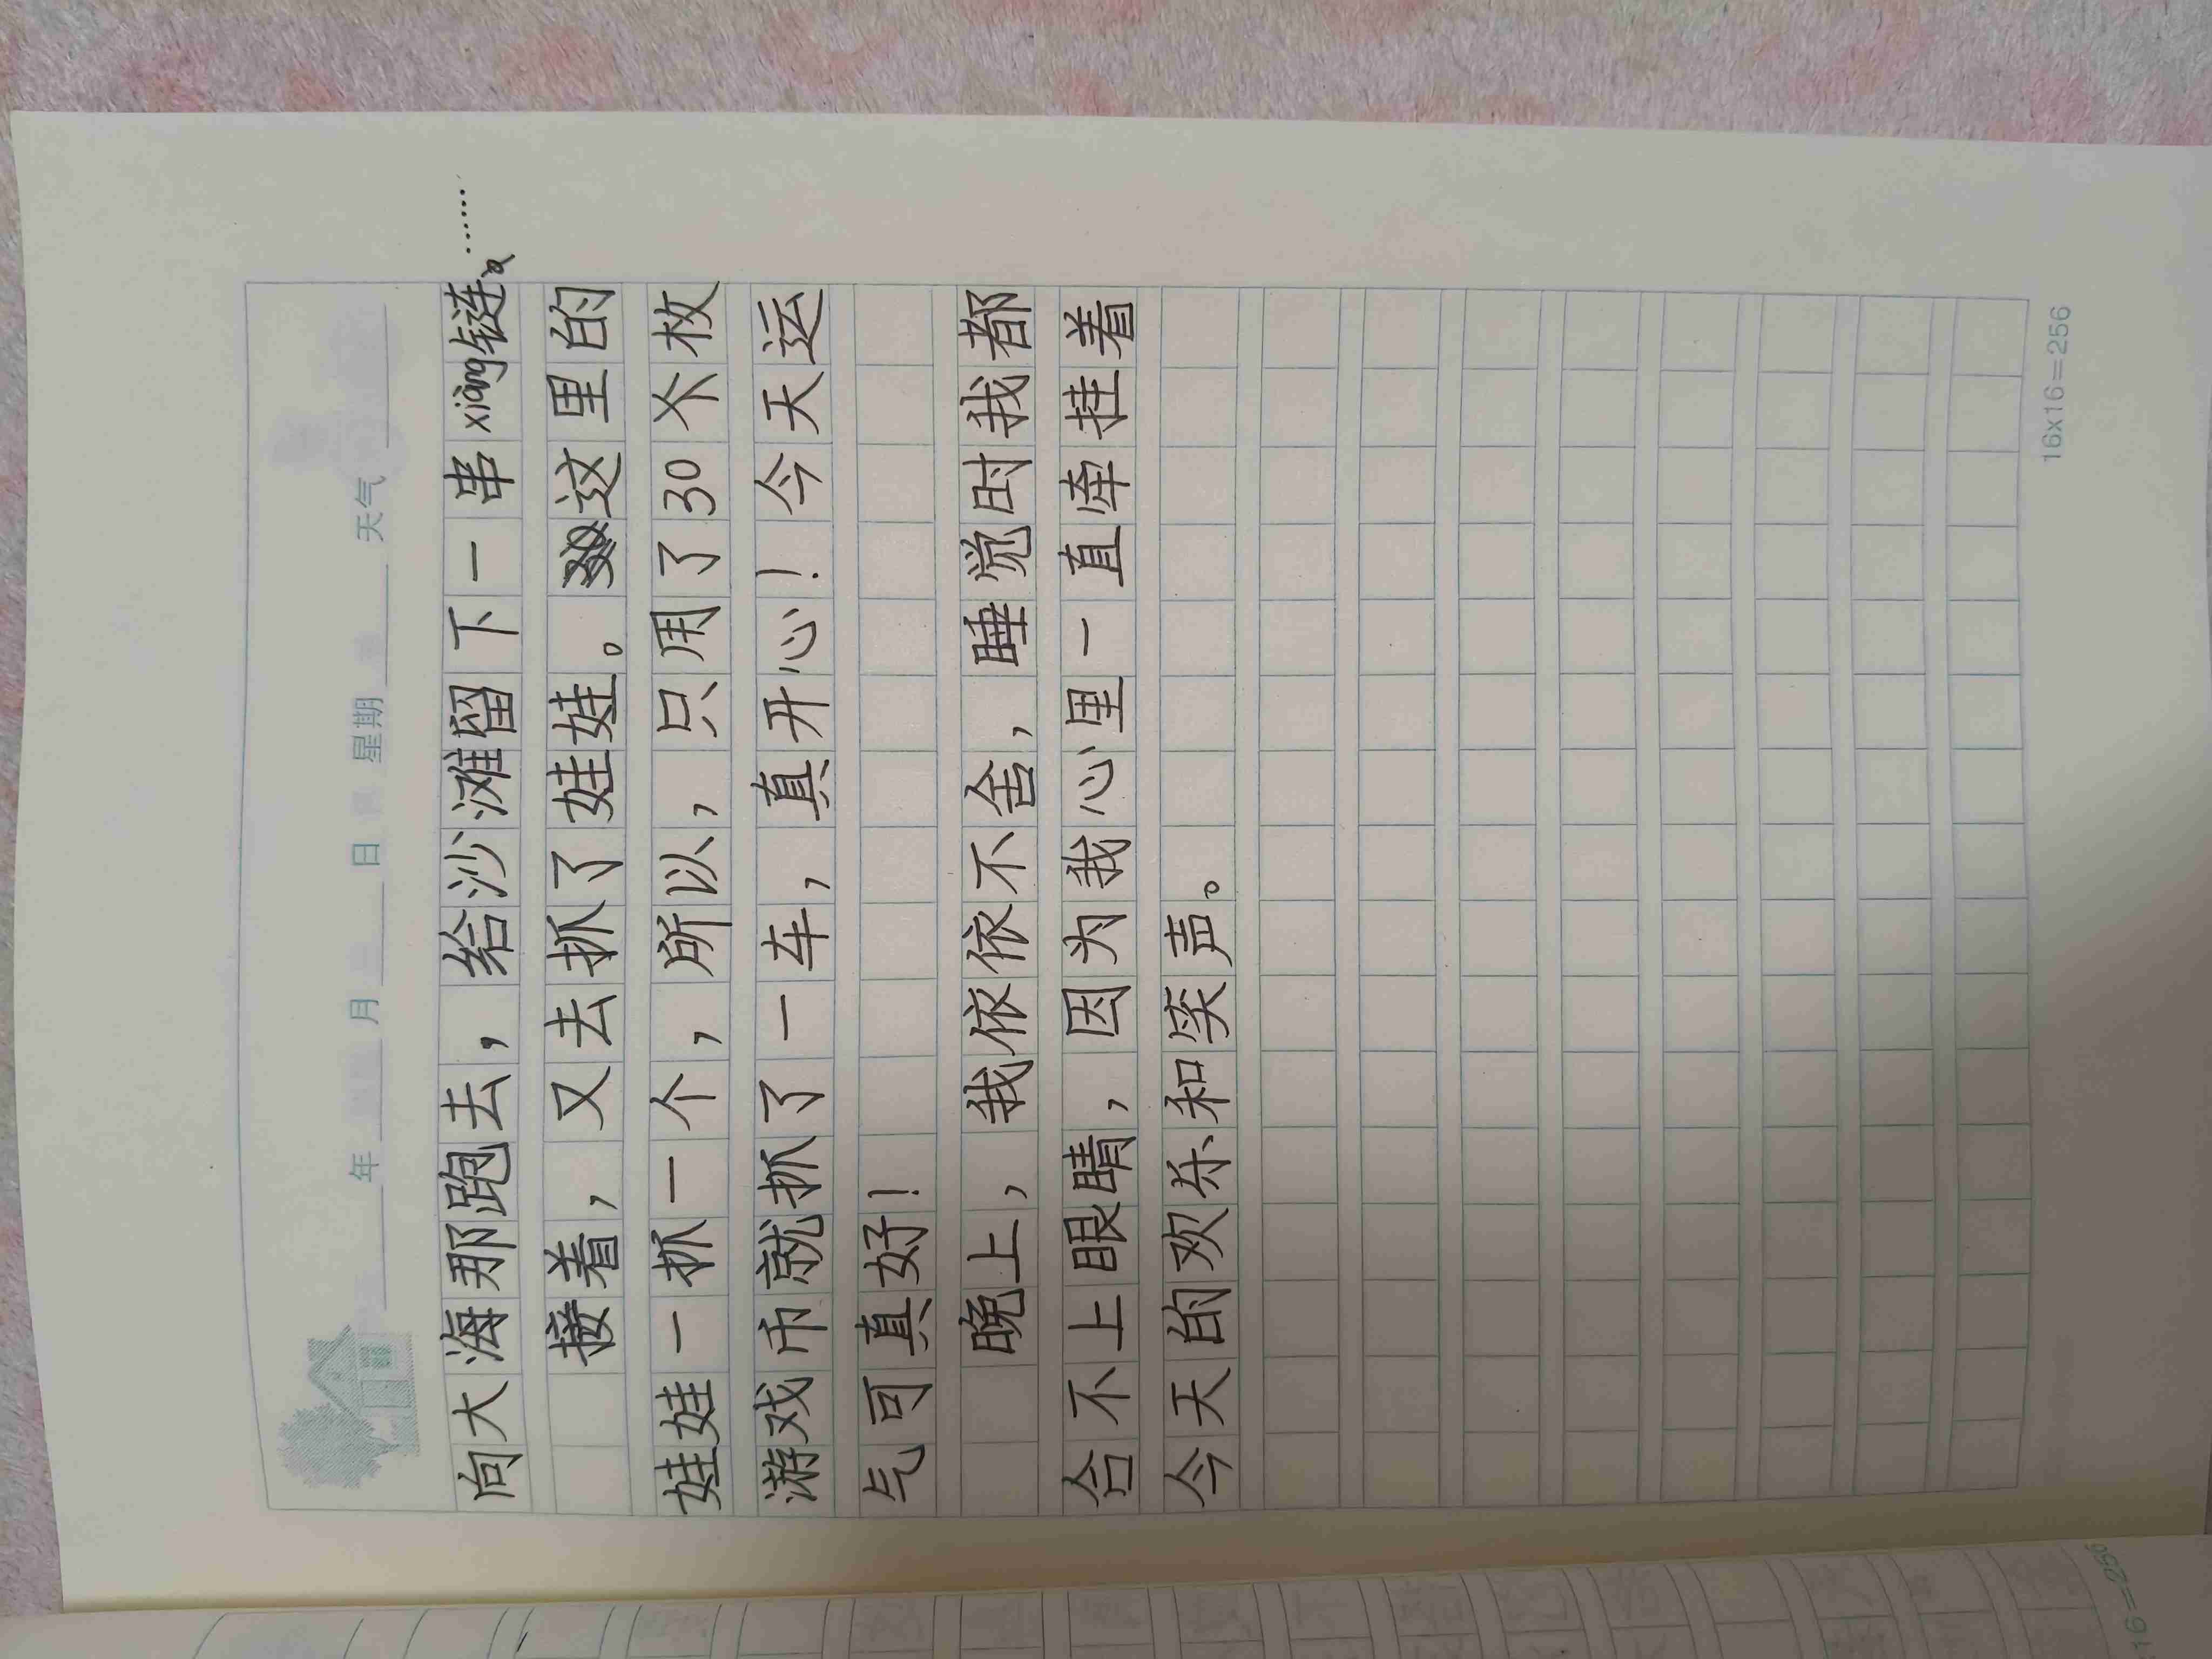 年 月 日 星期 天气
向大海那跑去，给沙滩留下一串xiàng链……
接着，又去抓了娃娃。这里的
娃娃一抓一个，所以，只用了30个枚
游戏币就抓了一车，真开心！今天运
气可真好！
晚上，我依依不舍，睡觉时我都
合不上眼睛，因为我心里一直牵挂着
今天的欢乐和笑声。
16x16=256
16=256